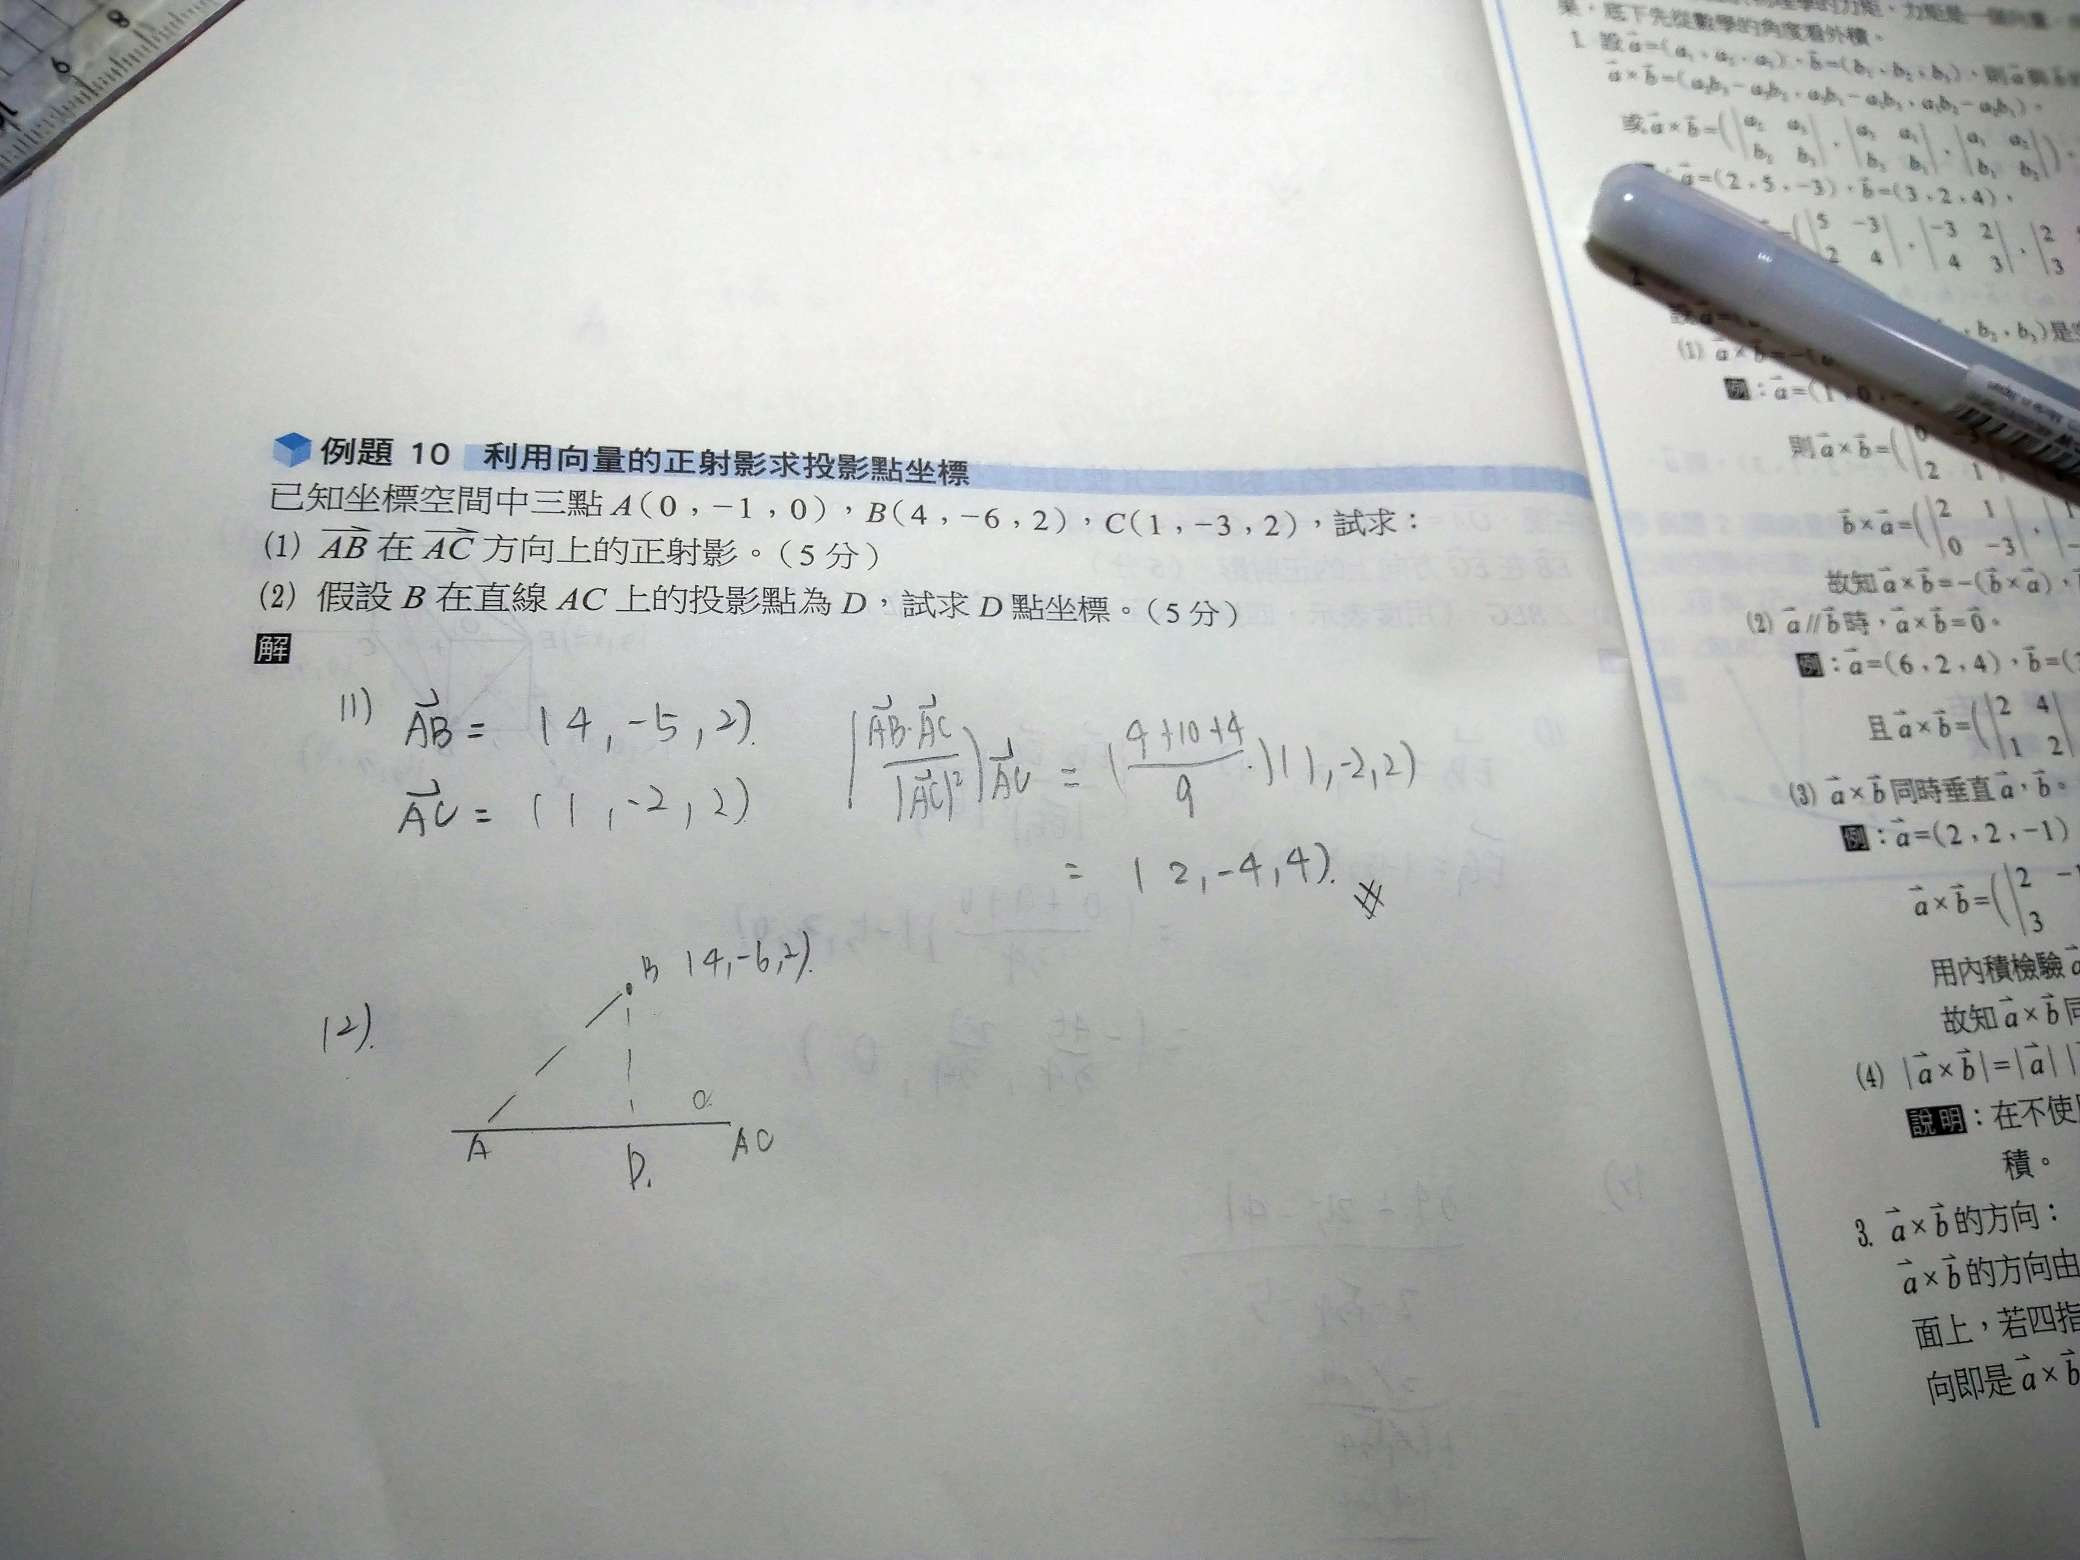 例題 10 利用向量的正射影求投影點坐標
已知坐標空間中三點 A(0，-1，0)，B(4，-6，2)，C(1，-3，2)，試求：
(1) AB 在 AC 方向上的正射影。(5 分)
(2) 假設 B 在直線 AC 上的投影點為 D，試求 D 點坐標。(5 分)
解
(1) AB = (4, -5, 2).
AC = (1, -2, 2)
(AB·AC / |AC|²) AC = (4+10+4 / 9)(1, -2, 2)
= (2, -4, 4).
(2).
B (4, -6, 2).
A
D.
AC
底下先從數學的角度看外積。
1. 設 a=(a₁，a₂，a₃)，b=(b₁，b₂，b₃)，則 a
a×b=(a₂b₃-a₃b₂，a₃b₁-a₁b₃，a₁b₂-a₂b₁)。
或 a×b=(|a₂ a₃ b₂ b₃|，|a₃ a₁ b₃ b₁|，|a₁ a₂ b₁ b₂|)
a=(2，5，-3)，b=(3，2，4)，
=(|5 -3 2 4|，|-3 2 4 3|，|2 3
，b₂，b₃)是
(1) a×b=-(
例：a=(1，0，
則 a×b=(
2 1
b×a=(|2 1 0 -3|，
故知 a×b=-(b×a)，
(2) a//b 時，a×b=0。
例：a=(6，2，4)，b=(
且 a×b=(|2 4 1 2|
(3) a×b 同時垂直 a，b。
例：a=(2，2，-1)
a×b=(|2 3
用內積檢驗 a
故知 a×b 同
(4) |a×b|=|a||
說明：在不使
積。
3. a×b 的方向：
a×b 的方向由
面上，若四指
向即是 a×b
8
9